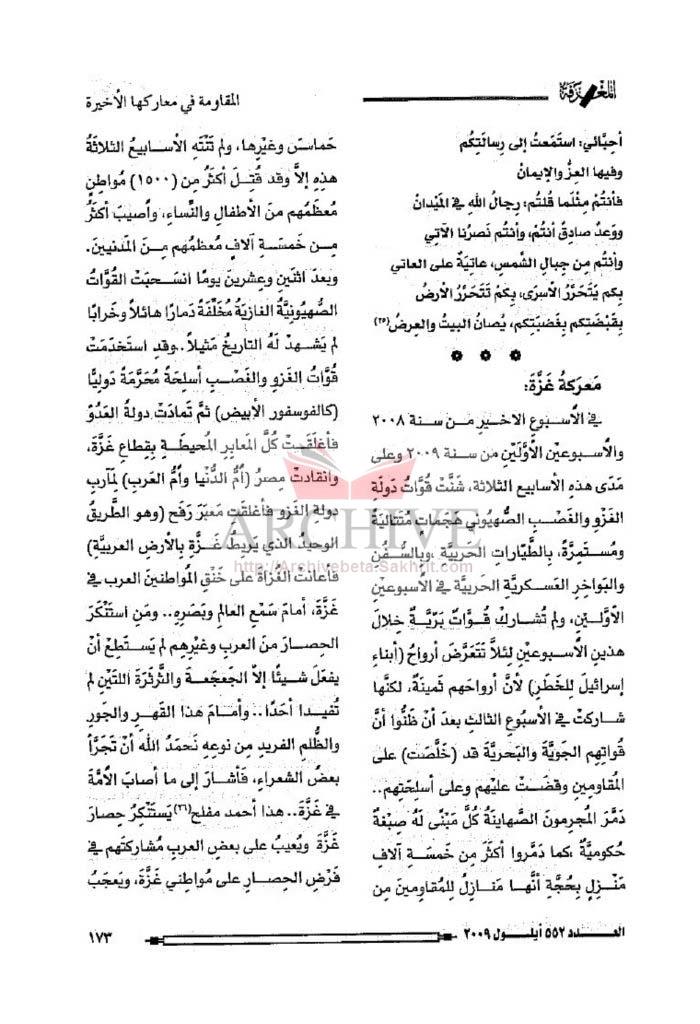 المعرفة
المقاومة في معاركها الأخيرة
أحِبَّائي: استَمَعتُ إلى رِسالَتِكُم
وفيها العِزُّ والإيمانُ
فأنتُمْ مِثْلَما قُلتُم: رِجالُ اللهِ في المَيْدانْ
ووَعدٌ صادِقٌ أنتُمْ، وأنتُم نَصرُنا الآتي
وأنتُم مِن جِبالِ الشَّمسِ، عاتِيَةٌ على العاتي
بِكم يَتَحَرَّرُ الأسرَى، بِكُمْ تَتَحَرَّرُ الأرضُ
بِقَبْضَتِكم بِغَضبَتِكم، يُصانُ البيتُ والعِرضُ(٢٥)
* * *
مَعركةُ غَزَّةَ:
في الأسبوع الاخير من سنة ٢٠٠٨
والأسبوعين الأوَّلَين من سنة ٢٠٠٩ وعلى
مَدَى هذه الأسابيع الثلاثة، شَنَّتْ قُوَّاتُ دَولَةِ
الغَزْوِ والغَصْبِ الصُّهيوني هَجَمات مُتتالية
ومُستمِرَّة، بالطَّيَّارات الحربية ،وبالسُّفُن
والبَواخِرِ العَسكريَّةِ الحَربيةِ في الأسبوعينِ
الأوَّلَينِ، ولم تُشارِك قُوَّاتٌ بَرِّيَّةٌ خلالَ
هذينِ الأسبوعَينِ لئلاَّ تَتَعرَّضَ أرواحُ (أبناءِ
إسرائيلَ لِلخَطَر) لأنَّ أرواحَهم ثَمينةٌ، لكنَّها
شاركتْ في الأسبُوعِ الثالثِ بعدَ أنْ ظَنُّوا أنَّ
قُواتِهم الجَويَّةَ والبَحريةَ قد (خَلَّصَت) على
المُقاومينَ وقَضَتْ عليهم وعلى أسلحَتِهم..
دَمَّرَ المُجرِمونَ الصَّهاينةُ كُلَّ مَبْنًى لَهُ صِبْغَةٌ
حُكوميَّةٌ ،كما دَمَّروا أكثَرَ مِن خَمسَةِ آلافِ
مَنْزِلٍ بِحُجَّةِ أنَّها مَنازِلُ لِلمُقاوِمينَ مِن
حَماسَ وغَيرِها، ولم تَنْتَهِ الأسابيعُ الثلاثةُ
هذِهِ إلاَّ وقد قُتِلَ أكثَرُ مِن (١٥٠٠) مُواطِنٍ
مُعظَمُهم منَ الأطفالِ والنِّساءِ، وأُصيبَ أكثَرُ
مِن خَمسَةِ آلافٍ مُعظَمُهم مِنَ المَدنيينَ.
وبعدَ اثنَينِ وعِشرينَ يومًا انسَحبَتْ القُوَّاتُ
الصُّهيونيَّةُ الغازيةُ مُخَلِّفَةً دَمارًا هائلاً وخَرابًا
لم يَشهدْ لَهُ التاريخُ مَثيلاً..وقدِ استَخدَمَتْ
قُوَّاتُ الغَزو والغَصبِ أسلِحةً مُحَرَّمَةً دَوليًّا
(كالفوسفور الأبيض) ثمَّ تَمادَتْ دولةُ العَدُوِّ
فأغلَقَتْ كُلَّ المعابِرِ المُحيطَةِ بِقِطاعِ غَزَّةَ،
وانقادَتْ مِصرُ (أُمُّ الدُّنْيا وأُمُّ العَربِ) لمآرِبِ
دولةِ الغزوِ فأغلَقَتْ مَعبَرَ رَفَح (وهو الطَّريقُ
الوحيدُ الذي يَربِطُ غَزَّةَ بِالأرضِ العربيةِ)
فأعانَتْ الغُزاةَ على خَنْقِ المُواطنينَ العرب في
غَزَّةَ، أمامَ سَمْعِ العالمِ وبَصَرِهِ.. ومَنِ استَنْكَرَ
الحِصارَ مِنَ العربِ وغَيرِهم لم يَستَطِعْ أنْ
يفعَلَ شيئًا إلاَّ الجَعجَعةَ والثَّرثَرةَ اللتَيْنِ لم
تُفيدا أحَدًا.. وأمامَ هذا القَهرِ والجَورِ
والظُّلمِ الفريدِ مِن نوعِهِ نَحمَدُ اللهَ أنْ تَجَرَّأَ
بعضُ الشعراءِ، فأشارَ إلى ما أصابَ الأمَّةَ
في غَزَّةَ.. هذا أحمد مفلح(٢٦)يَستَنْكِرُ حِصارَ
غَزَّةَ ويُعيبُ على بعضِ العربِ مُشاركتَهم في
فَرْضِ الحِصارِ على مُواطِني غَزَّةَ، ويَعجَبُ
ARCHIVE
http://Archivebeta.Sakhrit.com
العدد ٥٥٢ أيلول ٢٠٠٩
١٧٣